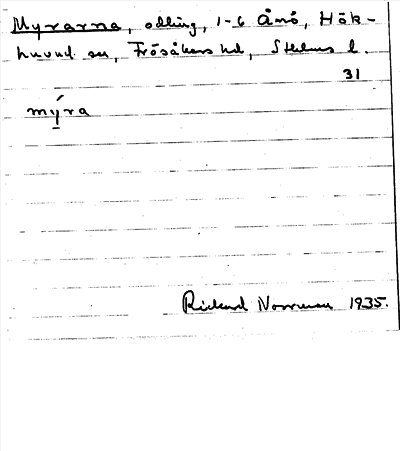 Myrarna, odling, 1-6 Ånö, Hök-
huvud sn, Frösåkers hd, Sthlms l.
31
mýra
Rickard Norrman 1935.